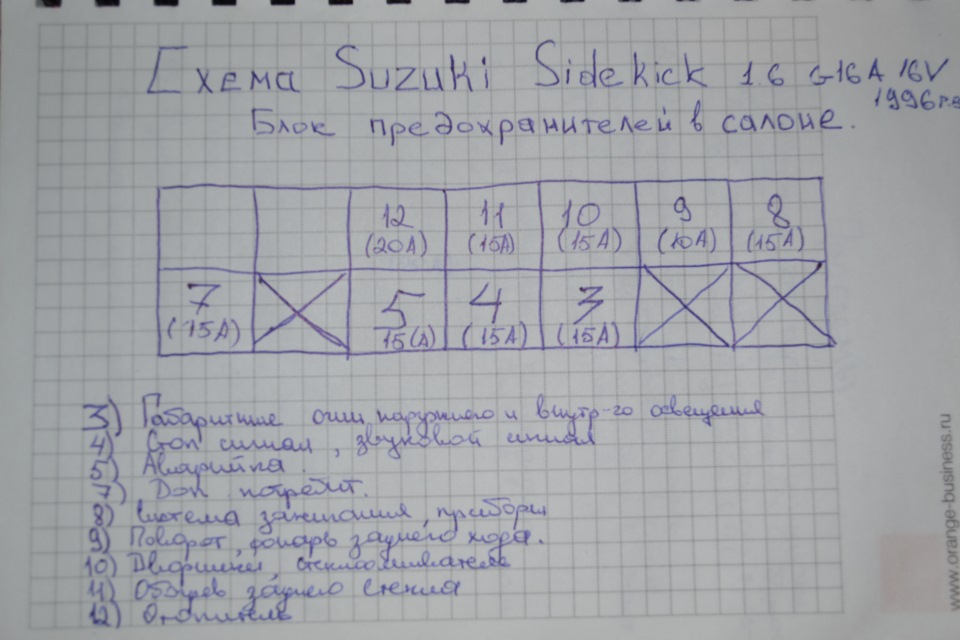 Схема Suzuki Sidekick 1.6 G16A 16V
1996г.в
Блок предохранителей в салоне.
12 11 10 9 8
(20A) (15A) (15A) (10A) (15A)
7 5 4 3
(15A) 15(A) (15A) (15A)
3) Габаритные огни, наружного и внутр-го освещения
4) Стоп сигнал, звуковой сигнал
5) Аварийка.
7) Доп. потребит.
8) Система зажигания, приборы
9) Поворот, фонарь заднего хода.
10) Дворники, стеклоомыватель
11) Обогрев заднего стекла
12) Отопитель
www.orange-business.ru